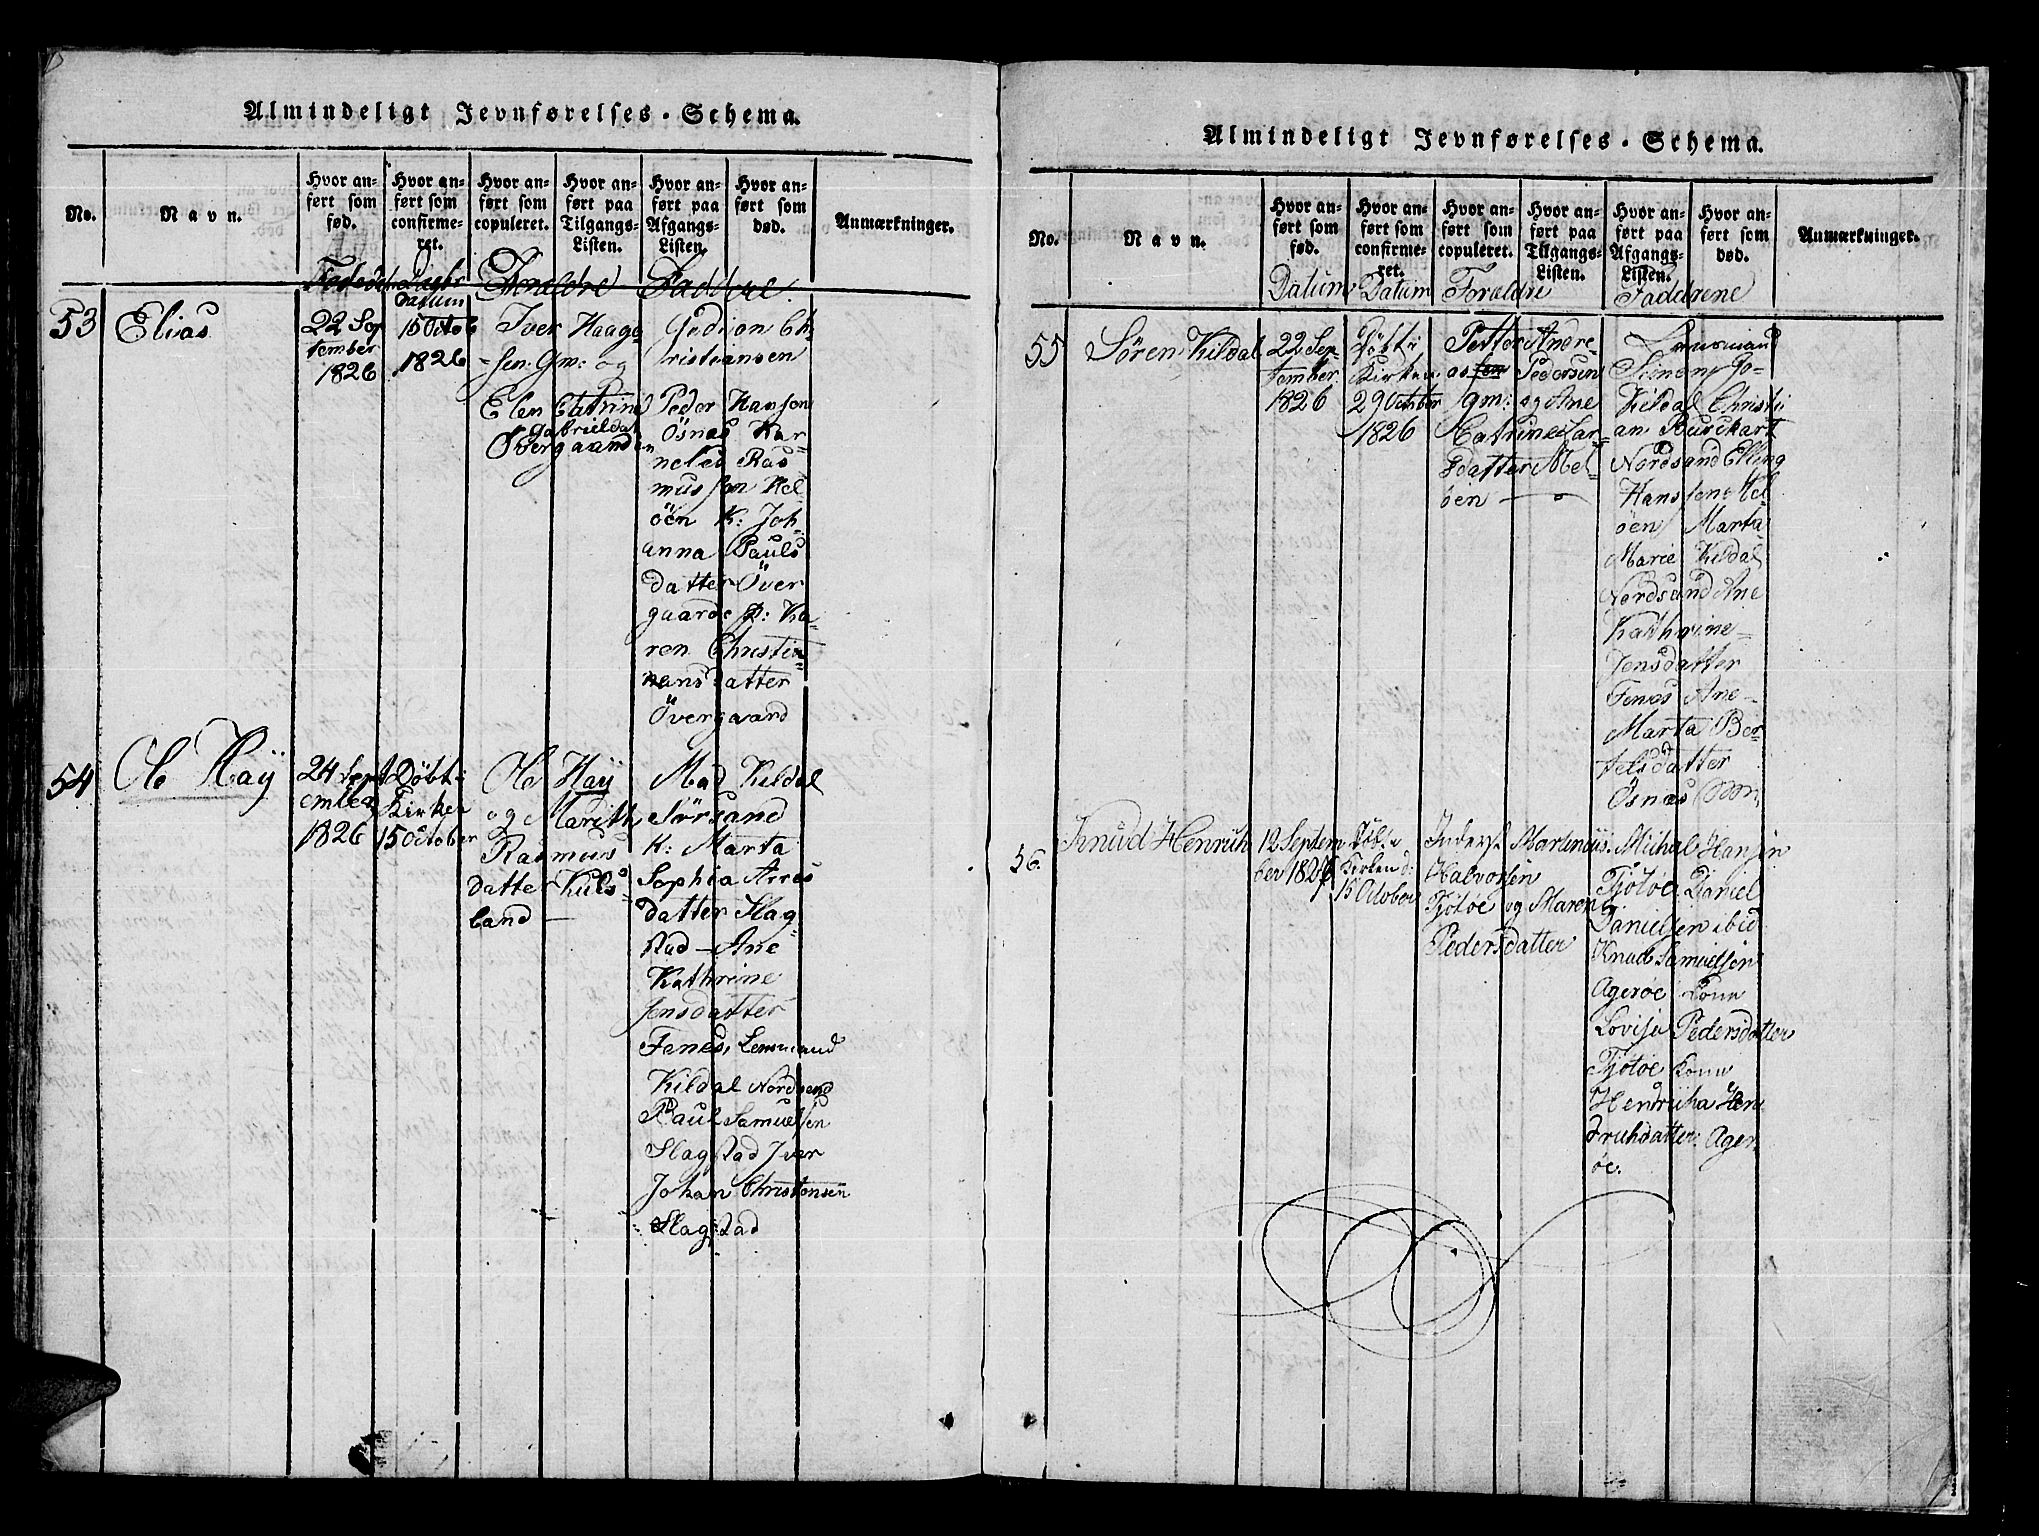 Almindeligt Jevnførelses-Schema.
No.
Navn.
Hvor an-
ført som
fød.
Hvor an-
ført som
confirme-
ret.
Hvor an-
ført som
copuleret.
Hvor an-
ført paa
Tilgangs-
Listen.
Hvor an-
ført paa
Afgangs-
Listen.
Hvor an-
ført som
død.
Anmærkninger.
Datum
Forældre
Faddere
53
Elias
22 Sep
tember
1826
15 Octob
1826
Iver Haage-
sen Gm: og
Elen Catrine
Gabrieldat
Övergaard
Gedion Ch
ristiansen
Peder Hansen
Ösnæs Kar-
neles Ras-
mussen Mel-
öen K: Joh-
anna Pauls
datter Över
gaard p: Ka-
ren Christia-
nansdatter
Övergaard
54
Ole Haÿ
24 Sept
ember
1826
Döbt i
Kirken
15 October
Ole Haÿ
og Marith
Rasmus
datter Kils
land
Mad Kildal
Sörsand
K: Marta
Sophia Arns
datter Slag
stad - Ane
Kathrine
Jensdatter
Fenes, Lensmand
Kildal Nordsand
Paul Samuelsen
Slagstad Iver
Johan Christensen
Slagstad
Almindeligt Jevnførelses-Schema.
No.
Navn.
Hvor an-
ført som
fød.
Hvor an-
ført som
confirme-
ret.
Hvor an-
ført som
copuleret.
Hvor an-
ført paa
Tilgangs-
Listen.
Hvor an-
ført paa
Afgangs-
Listen.
Hvor an-
ført som
død.
Anmærkninger.
Datum
Datum
Forældre
Faddrene
55
Sören Kildal
22 Sep-
tember
1826
Döbt i
Kirken
29 October
1826
Petter Andre-
as Pedersen
gm: og Ane
Catrine Lar-
sdatter Mel-
öen
Lensmand
Simon Po-
Kildal Christi
an Burchart
Nordsand Elling
Hansen Mel
öen Marta
Marie Kildal
Nordsand Ane
Kathrine
Jensdatter
Fenes Ane
Marta Ber-
telsdatter
Ösnæs
56.
Knud Henrich
12 Septem
ber 1826
Döbt i
Kirken d:
15 October
Inderst Martinus
Halvorsen
Tjötöe og Maren
Pedersdatter
Michal Hansen
Tjötöe Daniel
Danielsen ibid
Knud Samuelsen
Ageröe Kone
Lovisa Pedersdatter
Tjötöe Kone
Hendricha Hen
drichdatter Ager
öe.